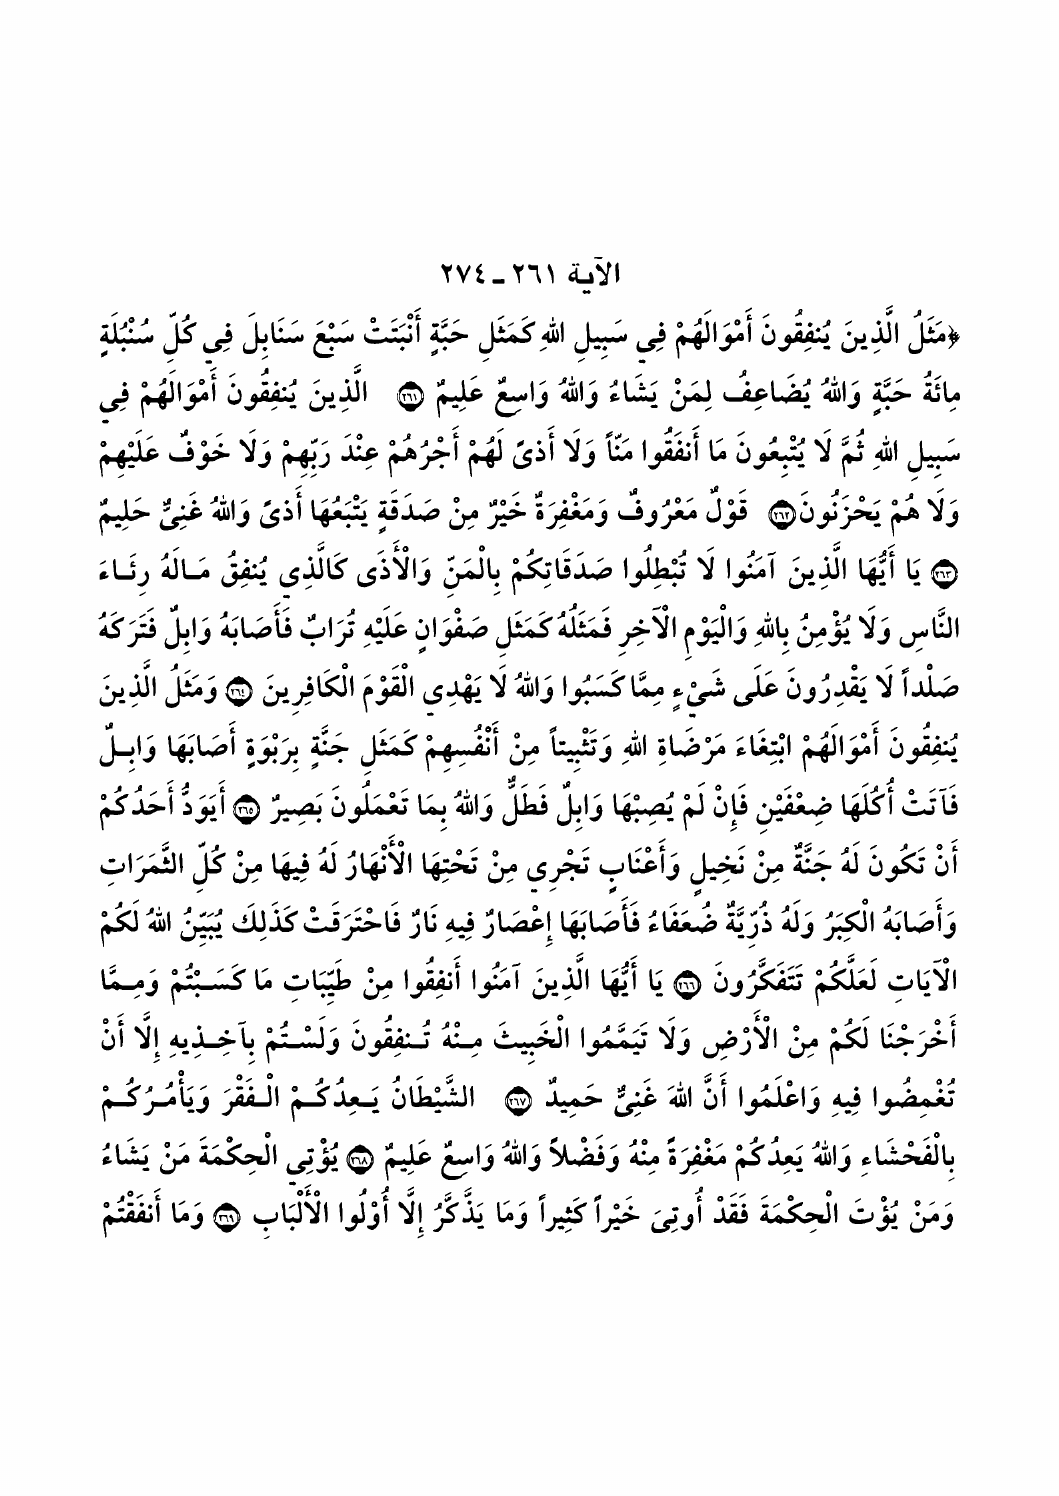 الآية ٢٦١ ـ ٢٧٤
﴿مَثَلُ الَّذِينَ يُنفِقُونَ أَمْوَالَهُمْ فِي سَبِيلِ اللهِ كَمَثَلِ حَبَّةٍ أَنْبَتَتْ سَبْعَ سَنَابِلَ فِي كُلِّ سُنْبُلَةٍ
مِائَةُ حَبَّةٍ وَاللهُ يُضَاعِفُ لِمَنْ يَشَاءُ وَاللهُ وَاسِعٌ عَلِيمٌ ٢٦١ الَّذِينَ يُنفِقُونَ أَمْوَالَهُمْ فِي
سَبِيلِ اللهِ ثُمَّ لَا يُتْبِعُونَ مَا أَنفَقُوا مَنّاً وَلَا أَذىً لَهُمْ أَجْرُهُمْ عِنْدَ رَبِّهِمْ وَلَا خَوْفٌ عَلَيْهِمْ
وَلَا هُمْ يَحْزَنُونَ ٢٦٢ قَوْلٌ مَعْرُوفٌ وَمَغْفِرَةٌ خَيْرٌ مِنْ صَدَقَةٍ يَتْبَعُهَا أَذىً وَاللهُ غَنِيٌّ حَلِيمٌ
٢٦٣ يَا أَيُّهَا الَّذِينَ آمَنُوا لَا تُبْطِلُوا صَدَقَاتِكُمْ بِالْمَنِّ وَالْأَذَى كَالَّذِي يُنفِقُ مَـالَهُ رِئَـاءَ
النَّاسِ وَلَا يُؤْمِنُ بِاللهِ وَالْيَوْمِ الْآخِرِ فَمَثَلُهُ كَمَثَلِ صَفْوَانٍ عَلَيْهِ تُرَابٌ فَأَصَابَهُ وَابِلٌ فَتَرَكَهُ
صَلْداً لَا يَقْدِرُونَ عَلَى شَيْءٍ مِمَّا كَسَبُوا وَاللهُ لَا يَهْدِي الْقَوْمَ الْكَافِرِينَ ٢٦٤ وَمَثَلُ الَّذِينَ
يُنفِقُونَ أَمْوَالَهُمْ ابْتِغَاءَ مَرْضَاةِ اللهِ وَتَثْبِيتاً مِنْ أَنْفُسِهِمْ كَمَثَلِ جَنَّةٍ بِرَبْوَةٍ أَصَابَهَا وَابِـلٌ
فَآتَتْ أُكُلَهَا ضِعْفَيْنِ فَإِنْ لَمْ يُصِبْهَا وَابِلٌ فَطَلٌّ وَاللهُ بِمَا تَعْمَلُونَ بَصِيرٌ ٢٦٥ أَيَوَدُّ أَحَدُكُمْ
أَنْ تَكُونَ لَهُ جَنَّةٌ مِنْ نَخِيلٍ وَأَعْنَابٍ تَجْرِي مِنْ تَحْتِهَا الْأَنْهَارُ لَهُ فِيهَا مِنْ كُلِّ الثَّمَرَاتِ
وَأَصَابَهُ الْكِبَرُ وَلَهُ ذُرِّيَّةٌ ضُعَفَاءُ فَأَصَابَهَا إِعْصَارٌ فِيهِ نَارٌ فَاحْتَرَقَتْ كَذَلِكَ يُبَيِّنُ اللهُ لَكُمْ
الْآيَاتِ لَعَلَّكُمْ تَتَفَكَّرُونَ ٢٦٦ يَا أَيُّهَا الَّذِينَ آمَنُوا أَنفِقُوا مِنْ طَيِّبَاتِ مَا كَسَـبْتُمْ وَمِـمَّا
أَخْرَجْنَا لَكُمْ مِنْ الْأَرْضِ وَلَا تَيَمَّمُوا الْخَبِيثَ مِـنْهُ تُـنفِقُونَ وَلَسْـتُمْ بِآخِـذِيهِ إِلَّا أَنْ
تُغْمِضُوا فِيهِ وَاعْلَمُوا أَنَّ اللهَ غَنِيٌّ حَمِيدٌ ٢٦٧ الشَّيْطَانُ يَـعِدُكُـمْ الْـفَقْرَ وَيَأْمُـرُكُـمْ
بِالْفَحْشَاءِ وَاللهُ يَعِدُكُمْ مَغْفِرَةً مِنْهُ وَفَضْلاً وَاللهُ وَاسِعٌ عَلِيمٌ ٢٦٨ يُؤْتِي الْحِكْمَةَ مَنْ يَشَاءُ
وَمَنْ يُؤْتَ الْحِكْمَةَ فَقَدْ أُوتِىَ خَيْراً كَثِيراً وَمَا يَذَّكَّرُ إِلَّا أُوْلُوا الْأَلْبَابِ ٢٦٩ وَمَا أَنفَقْتُمْ